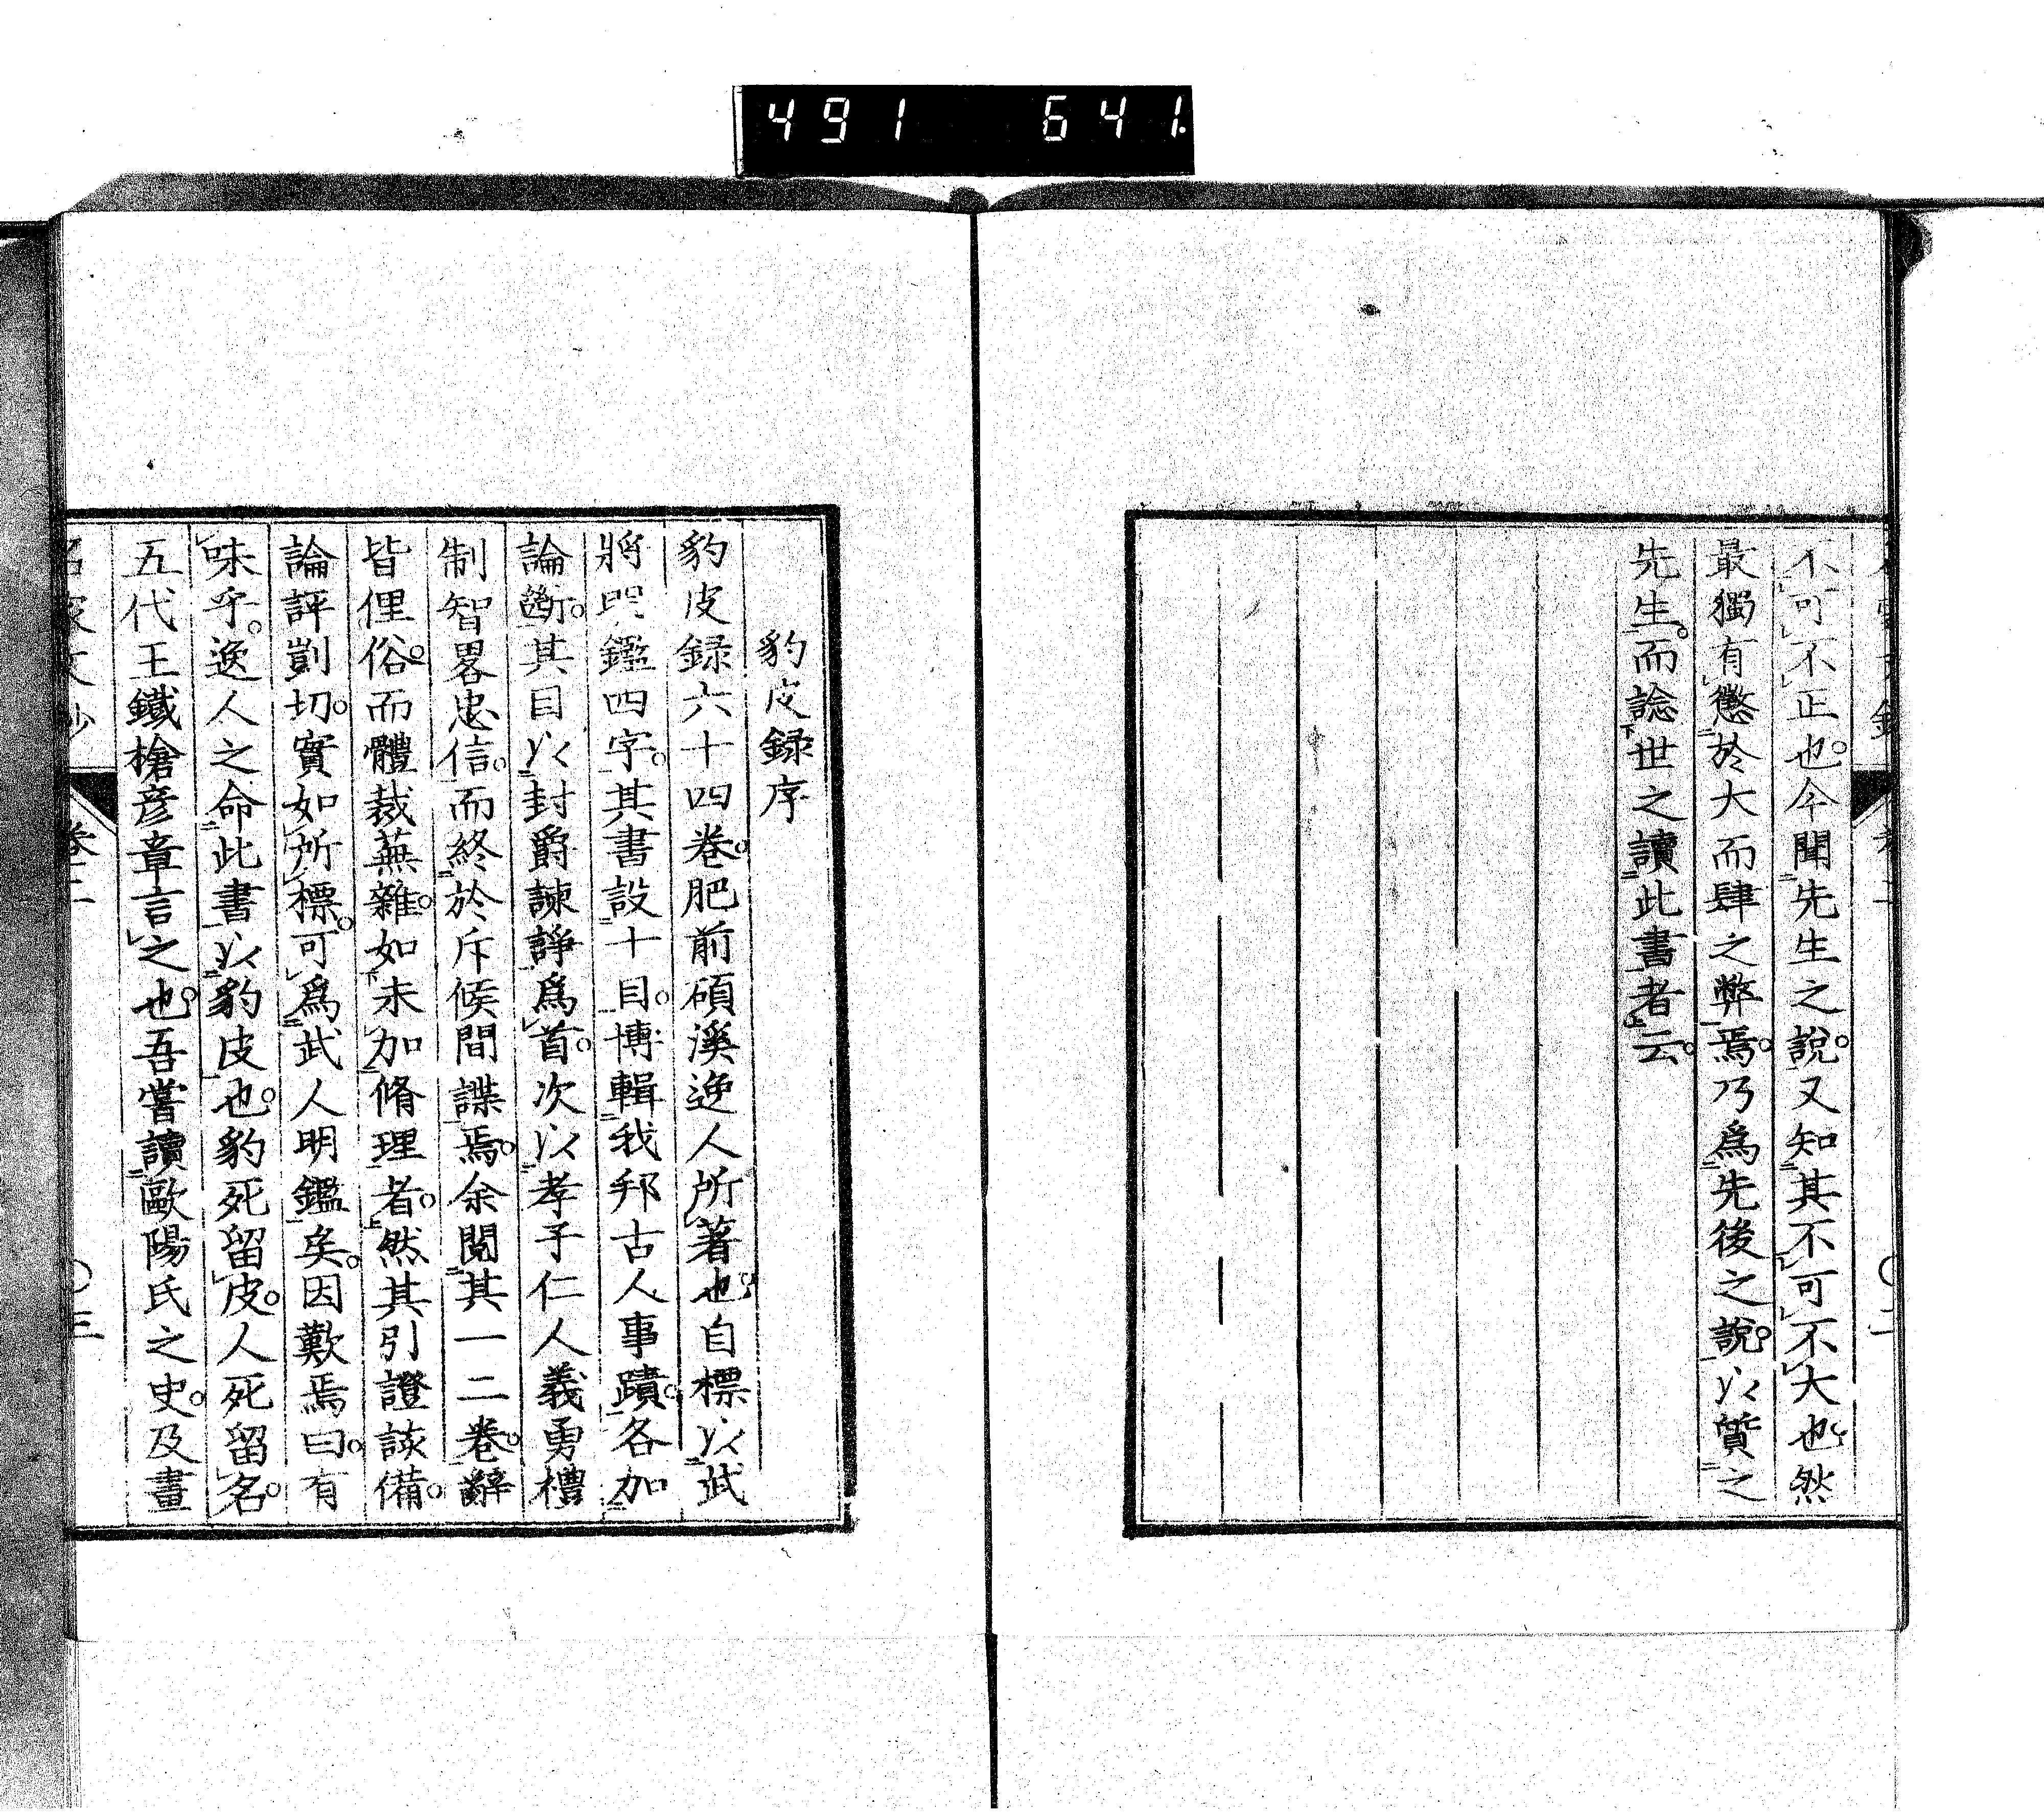 491 641
不可不正也。今聞先生之說。又知其不可不大也。然
最獨有懲於大而肆之弊焉。乃爲先後之說。以質之
先生。而諗世之讀此書者云。
豹皮録序
豹皮録六十四卷。肥前碩溪逸人所著也。自標以武
將明鑑四字。其書設十目。博輯我邦古人事蹟。各加
論斷。其目以封爵諫諍爲首。次以孝子仁人義勇禮
制智畧忠信。而終於斥候間諜焉。余閱其一二卷。辭
皆俚俗。而體裁蕪雜。如未加脩理者。然其引證該備。
論評剴切。實如所標。可爲武人明鑑矣。因歎焉曰。有
味乎。逸人之命此書。以豹皮也。豹死留皮。人死留名。
五代王鐵槍彦章言之也。吾嘗讀歐陽氏之史。及畫
卷二
〇三